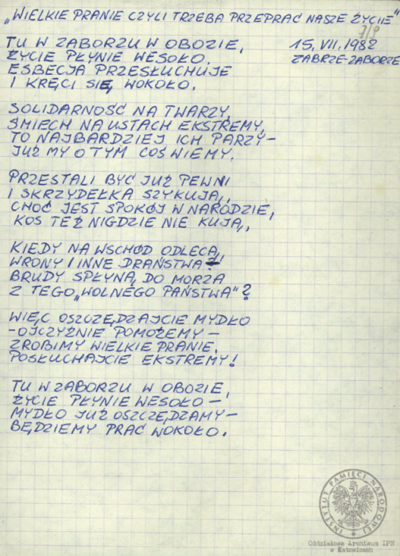 „WIELKIE PRANIE CZYLI TRZEBA PRZEPRAĆ NASZE ŻYCIE"
15.VII.1982
ZABRZE-ZABORZE
TU W ZABORZU W OBOZIE,
ŻYCIE PŁYNIE WESOŁO.
ESBECJA PRZESŁUCHUJE
I KRĘCI SIĘ, WOKOŁO.
SOLIDARNOŚĆ NA TWARZY,
ŚMIECH NA USTACH EKSTREMY,
TO NAJBARDZIEJ ICH PARZY-
JUŻ MY O TYM COŚ WIEMY.
PRZESTALI BYĆ JUŻ PEWNI
I SKRZYDEŁKA SZYKUJĄ,
CHOĆ JEST SPOKÓJ W NARODZIE,
KOS TEŻ NIGDZIE NIE KUJĄ,
KIEDY NA WSCHÓD ODLECĄ,
WRONY I INNE DRAŃSTWA
BRUDY SPŁYNĄ DO MORZA
Z TEGO „WOLNEGO PAŃSTWA"?
WIĘC OSZCZĘDZAJCIE MYDŁO
-OJCZYŹNIE POMOŻEMY-
ZROBIMY WIELKIE PRANIE,
POSŁUCHAJCIE EKSTREMY!
TU W ZABORZU W OBOZIE,
ŻYCIE PŁYNIE WESOŁO-,
MYDŁO JUŻ OSZCZĘDZAMY-
BĘDZIEMY PRAĆ WOKOŁO.
INSTYTUT PAMIĘCI NARODOWEJ
Oddziałowe Archiwum IPN
w Katowicach